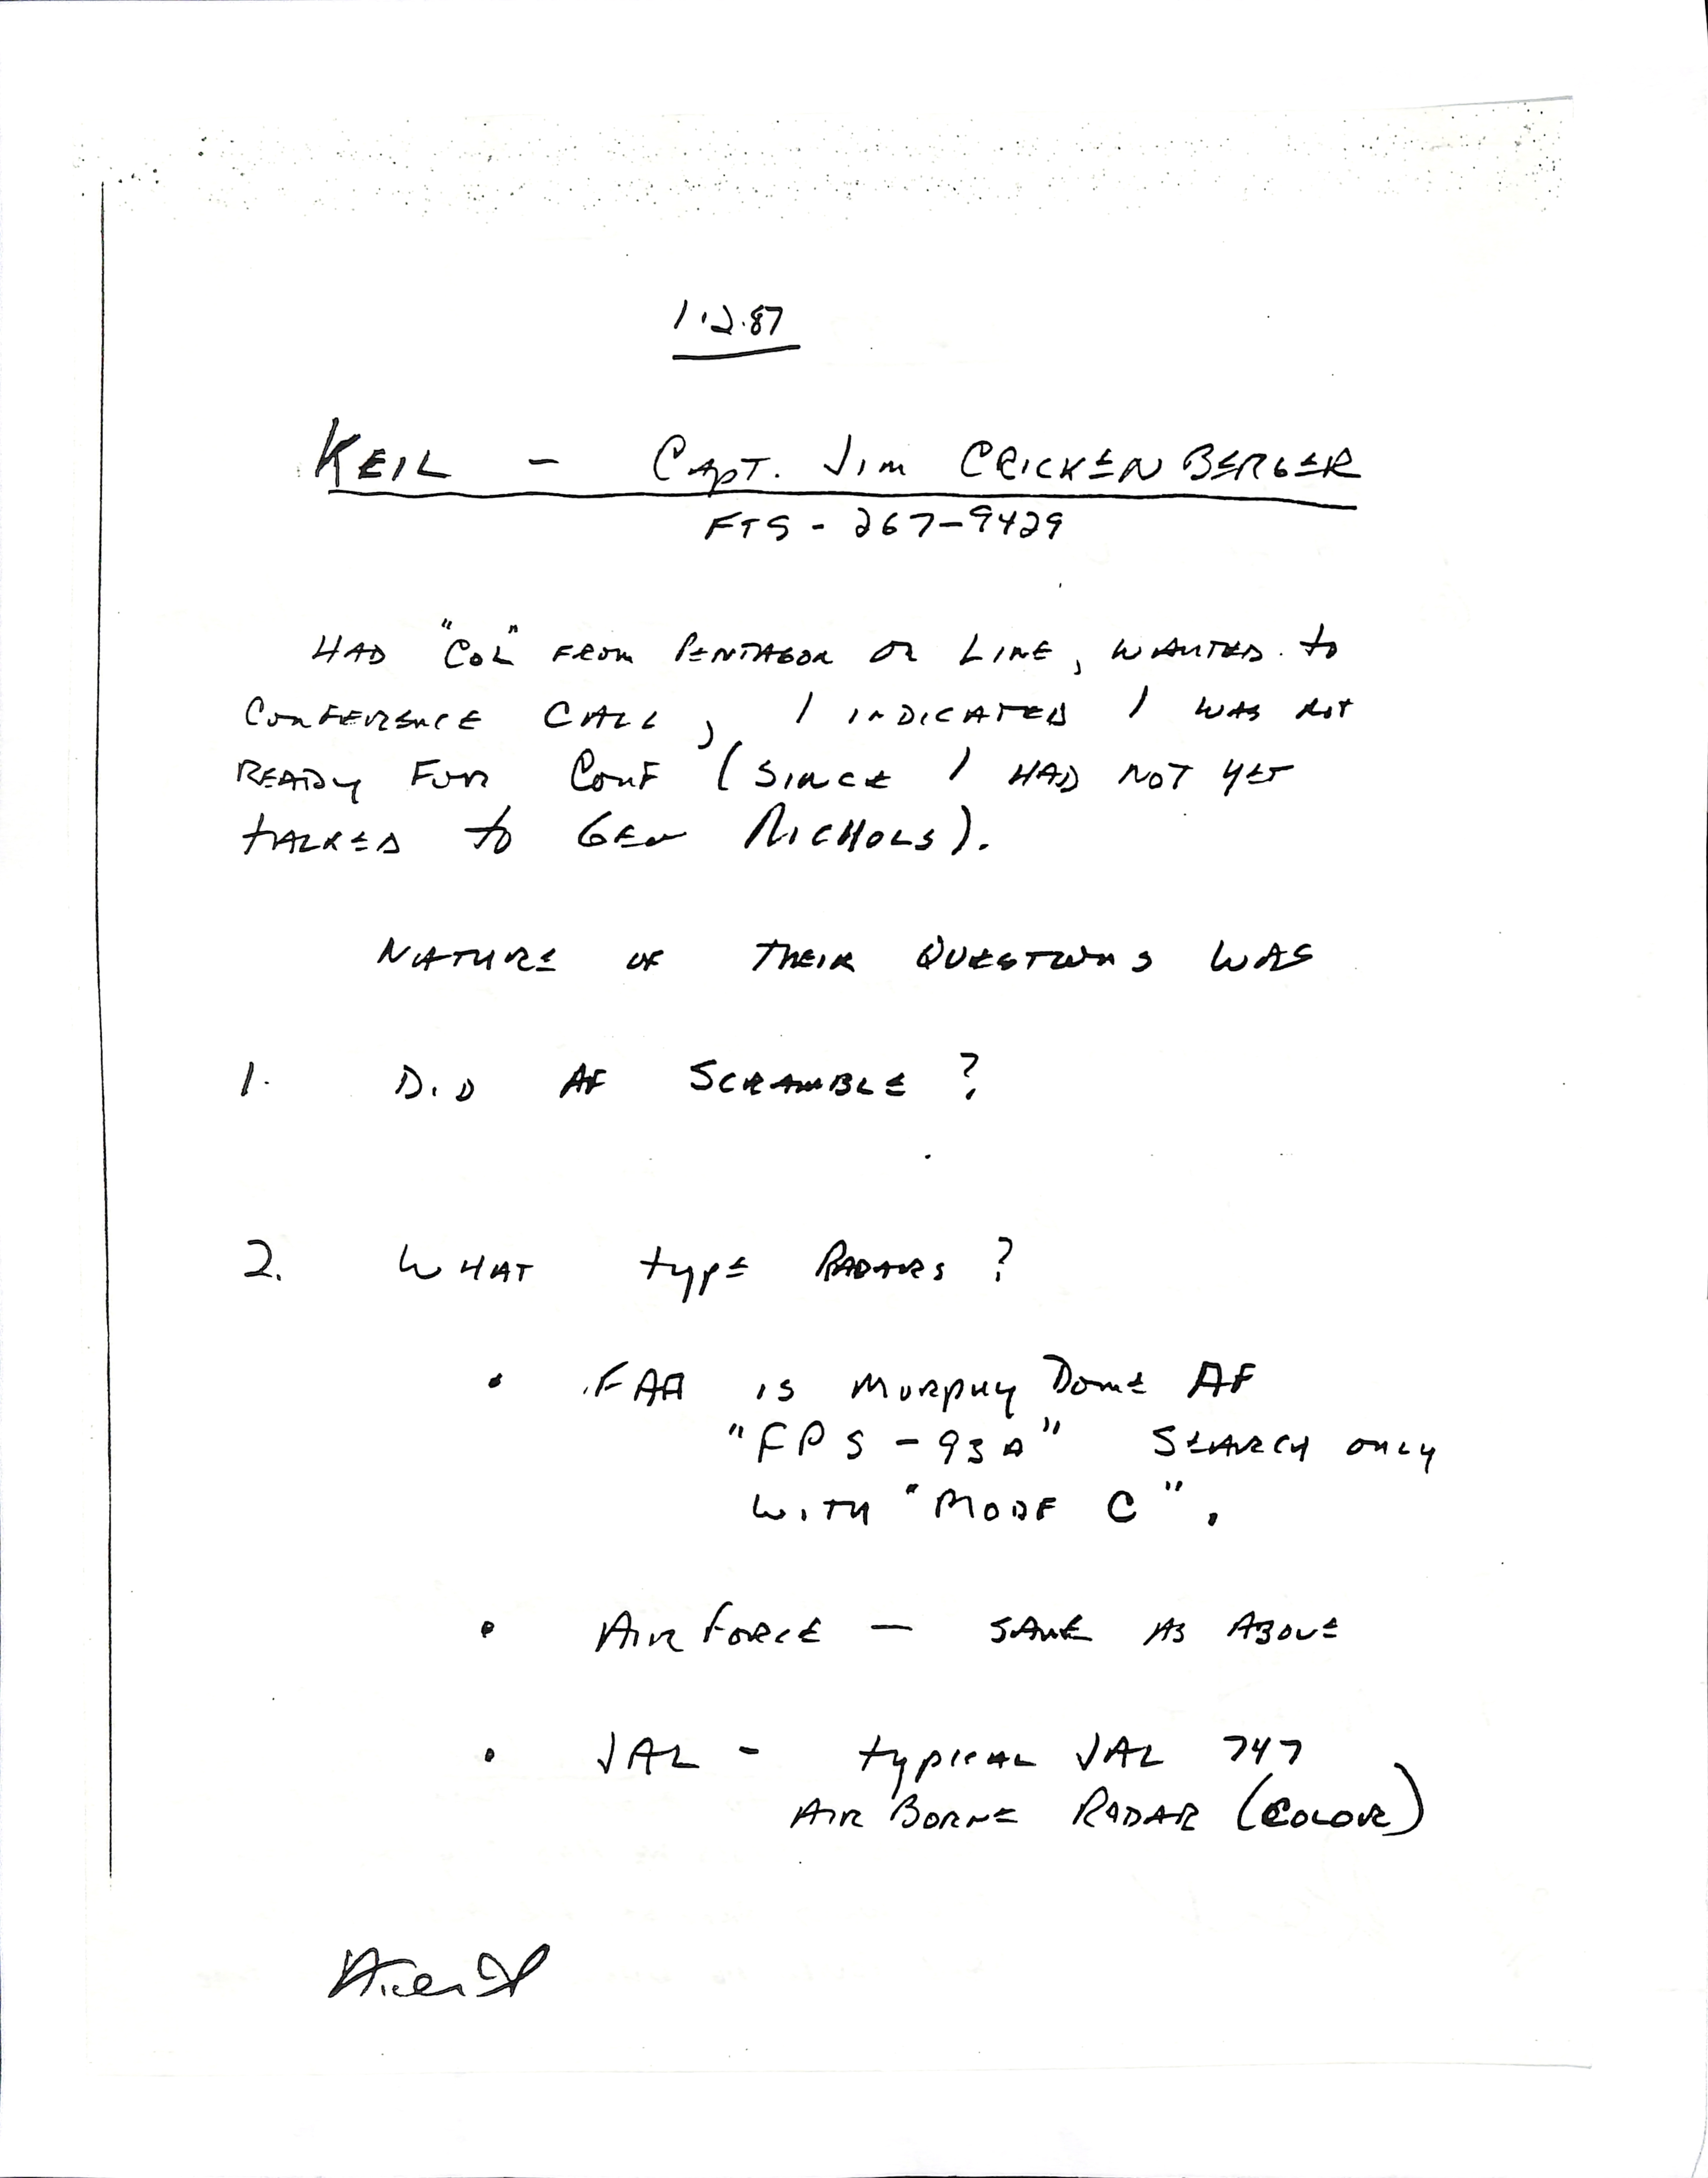 1.2.87
KEIL - CAPT. JIM CRICKENBERGER
FTS - 267-9429
HAD "COL" FROM PENTAGON ON LINE, WANTED TO
CONFERENCE CALL, I INDICATED I WAS NOT
READY FOR CONF (SINCE I HAD NOT YET
TALKED TO GEN NICHOLS).
NATURE OF THEIR QUESTIONS WAS
1. DID AF SCRAMBLE ?
2. WHAT TYPE RADARS ?
• FAA IS MURPHY DOME AF
"FPS-93A" SEARCH ONLY
WITH "MODE C".
• AIR FORCE — SAME AS ABOVE
• JAL - TYPICAL JAL 747
AIR BORNE RADAR (COLOR)